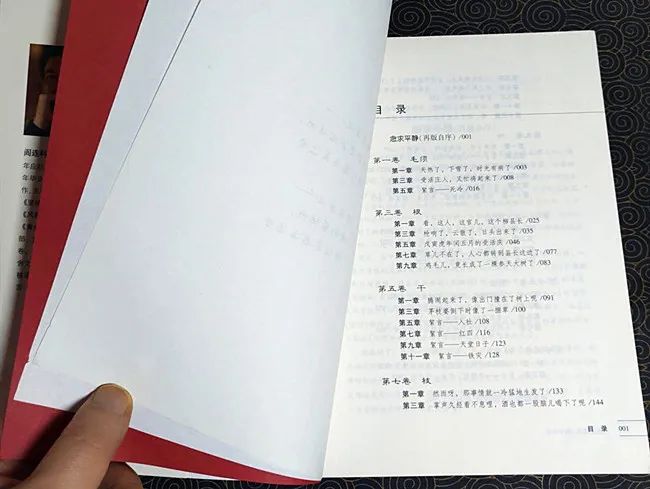 阎连科
目 录
急求平静（再版自序）/001
第一卷 毛须
第一章 天热了，下雪了，时光有病了/003
第三章 受活庄人，又忙将起来了/008
第五章 絮言——死冷/016
第三卷 根
第一章 看，这人，这官儿，这个柳县长/025
第三章 枪响了，云散了，日头出来了/035
第五章 戊寅虎年闰五月的受活庆/046
第七章 草儿不在了，人心都转到县长这边了/077
第九章 鸡毛儿，竟长成了一棵参天大树了/083
第五卷 干
第一章 腾闹起来了，像出门撞在了树上呢/091
第三章 茅枝婆倒下时像了一捆草/100
第五章 絮言——入社/108
第七章 絮言——红四/116
第九章 絮言——天堂日子/123
第十一章 絮言——铁灾/128
第七卷 枝
第一章 然而呀，那事情就一冷猛地生发了/133
第三章 掌声久经着不息哩，酒也都一股脑儿喝下了呢/144
目 录 001